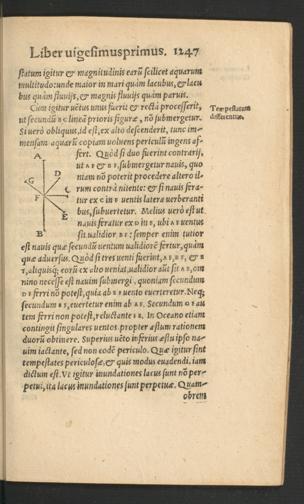 Liber uigesimusprimus. 1247
statum igitur & magnitudinis earũ scilicet aquarum
multitudo: unde maior in mari quàm lacubus, & lacu
bus quàm fluuijs, & magnis fluuijs quàm paruis.
Cùm igitur uẽtus unus fuerit & rectà processerit,
ut secundũ B C lineã prioris figuræ, nõ submergetur.
Si uerò obliquus, id est, ex alto descenderit, tunc im-
mensam aquarũ copiam uoluens periculũ ingens af-
fert. Quòd si duo fuerint contrarij,
ut A B & D E, submergetur nauis, quo
niam nõ poterit procedere altero il-
rum contrà nitente: & si nauis fera-
tur ex C in B uentis latera uerberanti
bus, subuertetur. Melius uerò est ut
nauis feratur ex D in E, ubi A B uentus
sit ualidior D E: semper enim tutior
est nauis quæ secundũ uentum ualidiorẽ fertur, quàm
quæ aduersus. Quòd si tres uenti fuerint, A B, D E, & B
F, aliquisq; eorũ ex alto ueniat, ualidior aũt sit A B, om
nino necesse est nauim submergi, quoniam secundum
D E ferri nõ potest, quia ab A B uento euerteretur. Neq;
secundum A B, euertetur enim ab A B. Secundum G E au
tem ferri non potest, reluctante E B. In Oceano etiam
contingit singulares uentos, propter æstum rationem
duorũ obtinere. Superius uẽto inferius æstu ipso na-
uim iactante, sed non codẽ periculo. Quæ igitur sint
tempestates periculosæ, & quis modus euadendi, iam
dictum est. Vt igitur inundationes lacus sunt nõ per-
petui, ita lacus inundationes sunt perpetuæ. Quam-
obrem
Tempestatum
differentiæ.
A
D
G
F
C
E
B